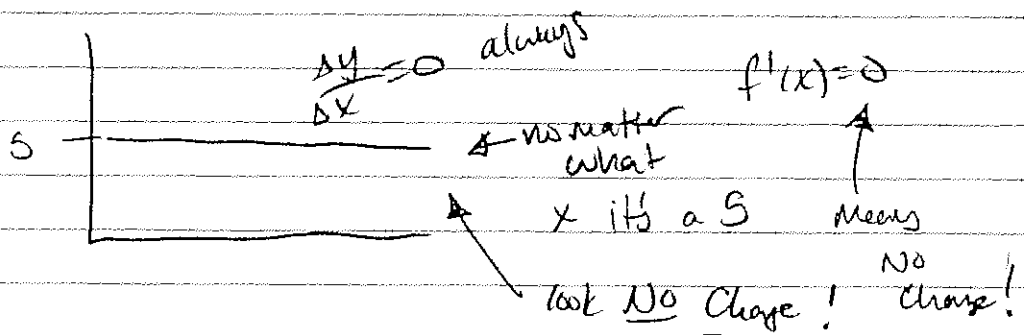 Δy/Δx = 0 always
f'(x) = 0
5
← no matter
what
x it's a 5
Means
No
Change!
look No Change!